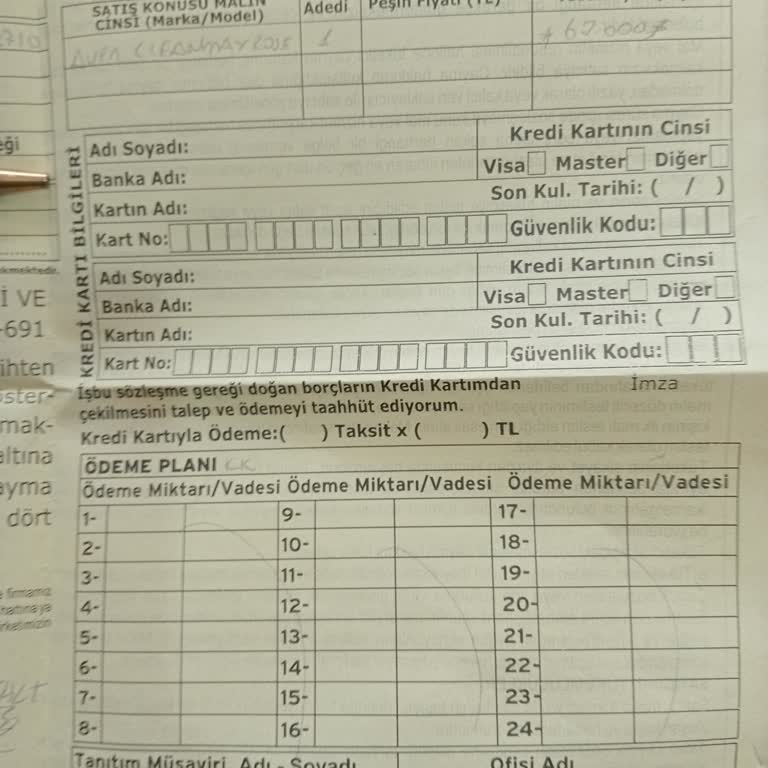 SATIŞ KONUSU MALIN
CİNSİ (Marka/Model)
Adedi
Peşin Fiyatı (TL)
1
KREDİ KARTI BİLGİLERİ
Adı Soyadı:
Kredi Kartının Cinsi
Banka Adı:
Visa Master Diğer
Kartın Adı:
Son Kul. Tarihi: ( / )
Kart No:
Güvenlik Kodu:
Adı Soyadı:
Kredi Kartının Cinsi
Banka Adı:
Visa Master Diğer
Kartın Adı:
Son Kul. Tarihi: ( / )
Kart No:
Güvenlik Kodu:
İşbu sözleşme gereği doğan borçların Kredi Kartımdan
İmza
çekilmesini talep ve ödemeyi taahhüt ediyorum.
Kredi Kartıyla Ödeme:( ) Taksit x ( ) TL
ÖDEME PLANI
Ödeme Miktarı/Vadesi Ödeme Miktarı/Vadesi Ödeme Miktarı/Vadesi
1- 9- 17-
2- 10- 18-
3- 11- 19-
4- 12- 20-
5- 13- 21-
6- 14- 22-
7- 15- 23-
8- 16- 24-
Tanıtım Müşaviri Adı - Soyadı
Ofisi Adı
İ VE
-691
dört